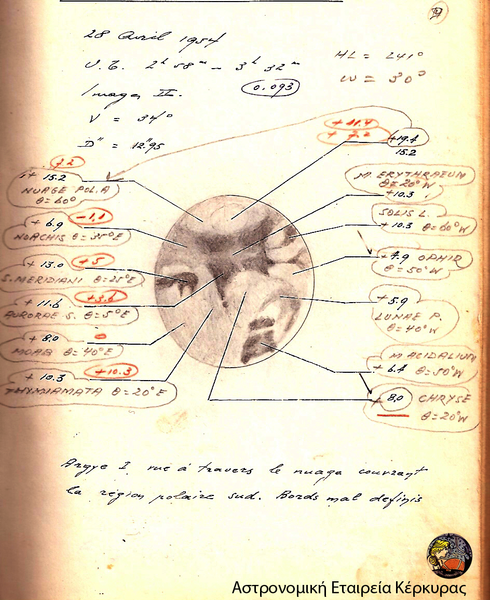 28 Avril 1954
U.T. 2h 58m — 3h 32m
HL = 241°
W = 3°0°
Images II.
0.093
V = 34°
D" = 12."95
+11.4
+7.2
+19.4
15.2
7.2
+ 15.2
NUAGE POL. A
θ = 60°
M. ERYTHRAEUM
θ = 20° W
+ 10.3
+ 6.9 −1.1
NOACHIS θ = 35° E
SOLIS L.
+ 10.3 θ = 60° W
+ 13.0 +5
S. MERIDIANI θ = 25° E
+ 4.9 OPHIR
θ = 50° W
+ 11.6 +3.6
AURORAE S. θ = 5° E
+ 5.9
LUNAE P.
θ = 40° W
+ 8.0 0
MOAB θ = 40° E
M ACIDALIUM
+ 6.4 θ = 50° W
+ 10.3 +10.3
THYMIAMATA θ = 20° E
+ 8.0 CHRYSE
θ = 20° W
Argyre I vue à travers le nuage couvrant
la région polaire sud. Bords mal définis
Αστρονομική Εταιρεία Κέρκυρας